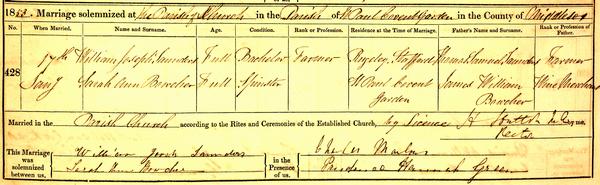 1853. Marriage solemnized at the Parish Church in the Parish of St Paul Covent Garden in the County of Middlesex
When Married. Name and Surname. Age. Condition. Rank or Profession. Residence at the Time of Marriage. Father's Name and Surname. Rank or Profession of Father.
428
17th Jany William Joseph Saunders Full Bachelor Farmer Rugeley Stafford Thomas Samuel Saunders Farmer
Sarah Ann Bowcher Full Spinster St Paul Covent Garden James William Bowcher Wine Merchant
Married in the Parish Church according to the Rites and Ceremonies of the Established Church, by Licence by me,
Rector
This Marriage was solemnized between us,
William Joseph Saunders
Sarah Ann Bowcher
in the Presence of us,
Charles
Prudence Hannah Green